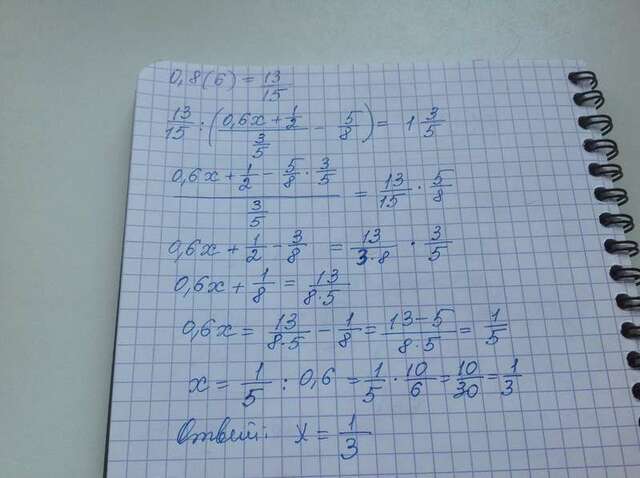 0,8(6) = 13/15
13/15 : ((0,6x + 1/2)/(3/5) - 5/8) = 1 3/5
(0,6x + 1/2 - 5/8 · 3/5)/(3/5) = 13/15 · 5/8
0,6x + 1/2 - 3/8 = 13/(3·8) · 3/5
0,6x + 1/8 = 13/(8·5)
0,6x = 13/(8·5) - 1/8 = (13-5)/(8·5) = 1/5
x = 1/5 : 0,6 = 1/5 · 10/6 = 10/30 = 1/3
Ответ: x = 1/3